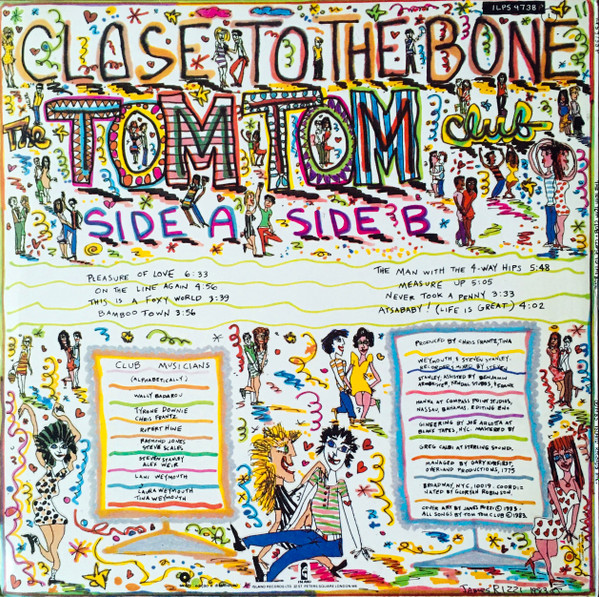 ILPS 9738
CLOSE TO THE BONE
The TOM TOM Club
SIDE A SIDE B
PLEASURE OF LOVE 6:33
ON THE LINE AGAIN 4:56
THIS IS A FOXY WORLD 3:39
BAMBOO TOWN 3:56
THE MAN WITH THE 4-WAY HIPS 5:48
MEASURE UP 5:05
NEVER TOOK A PENNY 3:33
ATSABABY! (LIFE IS GREAT) 4:02
CLUB MUSICIANS
(ALPHABETICALLY)
WALLY BADAROU
TYRONE DOWNIE
CHRIS FRANTZ
RUPERT HINE
RAYMOND JONES
STEVE SCALES
STEVEN STANLEY
ALEX WEIR
LANI WEYMOUTH
LAURA WEYMOUTH
TINA WEYMOUTH
PRODUCED BY CHRIS FRANTZ, TINA
WEYMOUTH & STEVEN STANLEY.
RECORDED & MIXED BY STEVEN
STANLEY, ASSISTED BY BENJAMIN
MANNA AT COMPASS POINT STUDIOS,
NASSAU, BAHAMAS. EDITING END
GINEERING BY JOE ARLOTTA AT
BLANK TAPES, NYC. MASTERED BY
GREG CALBI AT STERLING SOUND.
MANAGED BY GARY KURFIRST,
OVERLAND PRODUCTIONS, 1775
BROADWAY, NYC, 10019. COORDI
NATED BY GLORYAN ROBINSON.
COVER ART BY JAMES RIZZI © 1983
ALL SONGS BY TOM TOM CLUB © 1983.
ISLAND RECORDS LTD. 22 ST. PETERS SQUARE LONDON W6
JAMES RIZZI 1983